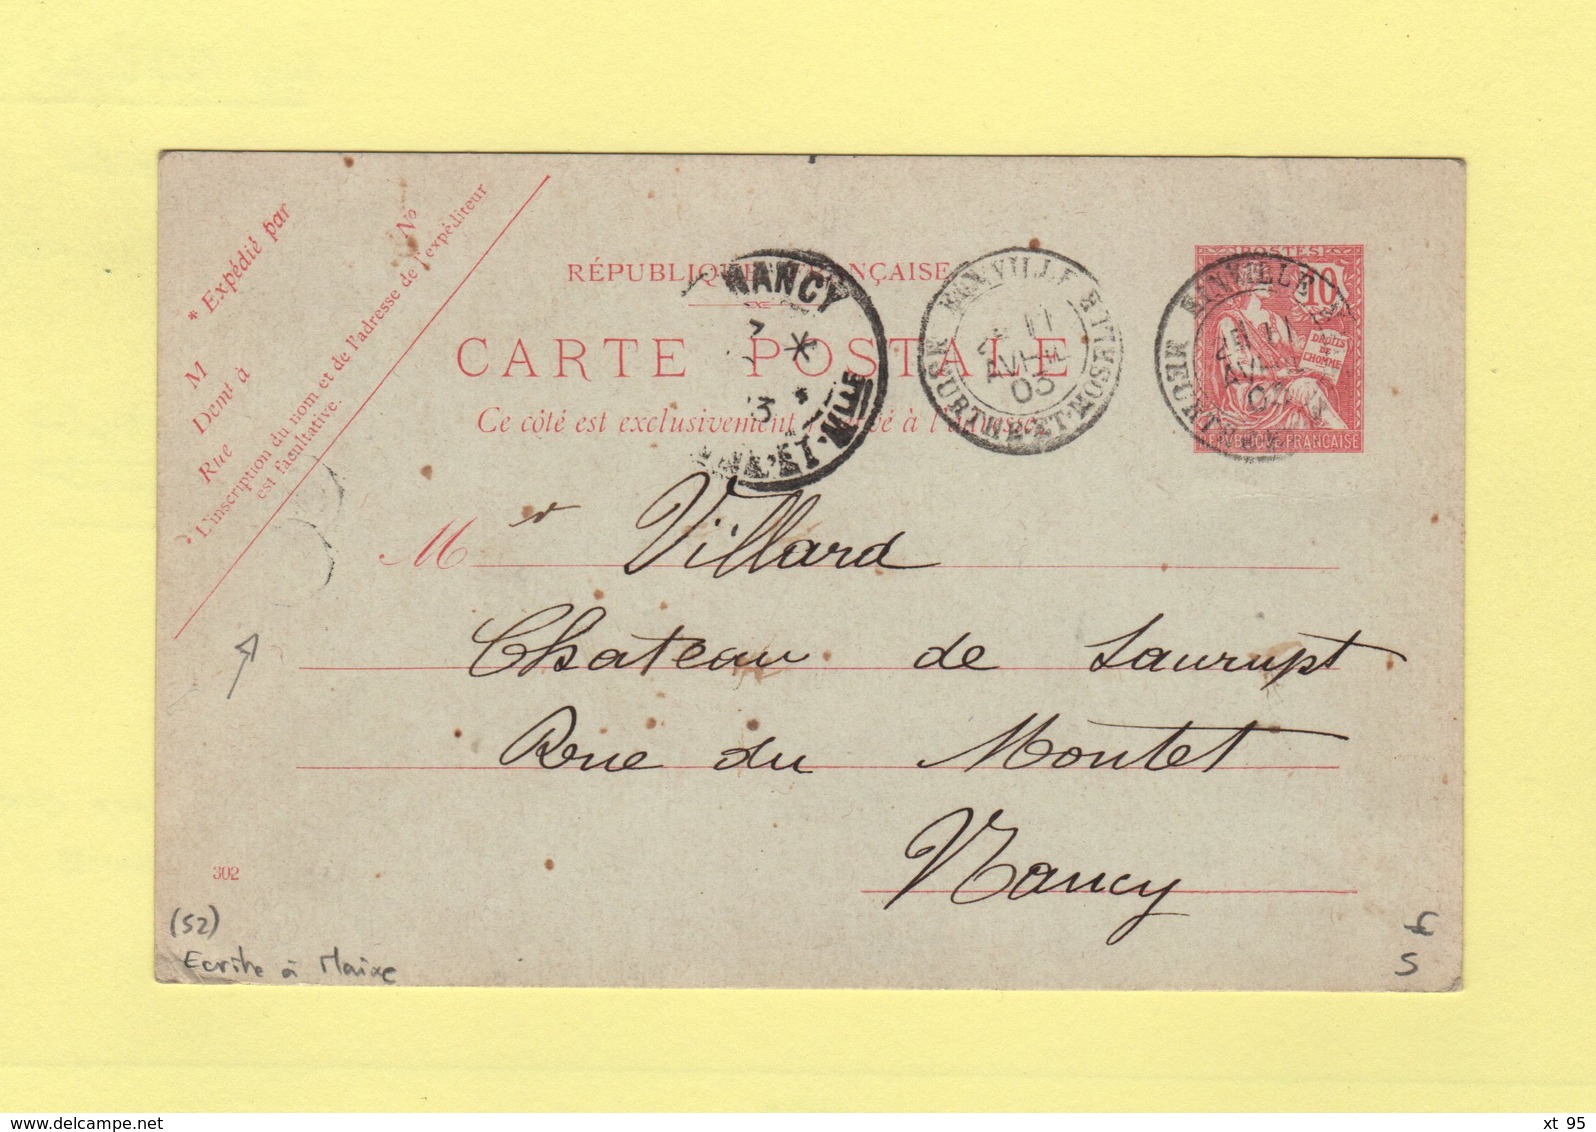 * Expédié par
M
Demt à
Rue
No
* L'inscription du nom et de l'adresse de l'expéditeur
est facultative.
RÉPUBLIQUE FRANÇAISE
CARTE POSTALE
Ce côté est exclusivement réservé à l'adresse
NANCY
3
ET-MLLE
EINVILLE
11
AVRIL
03
MEURTHE-ET-MOSELLE
EINVILLE
11
AVRIL
03
MEURTHE
POSTES
10
DROITS
DE
L'HOMME
REPUBLIQUE FRANÇAISE
M r Villard
Chateau de Saurupt
Rue du Montet
Nancy
302
(52)
Ecrite à Maixe
f
5
xt 95